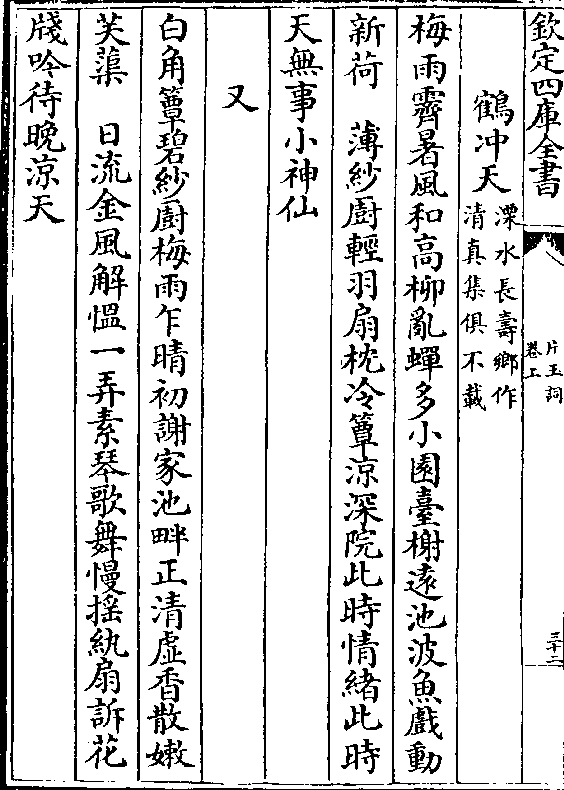 欽定四庫全書
片玉詞
卷上
三十二
鶴冲天
溧水長壽鄉作
清真集俱不載
梅雨霽暑風和高柳亂蟬多小園臺榭遠池波魚戲動
新荷　薄紗廚輕羽扇枕冷簟凉深院此時情緒此時
天無事小神仙
又
白角簟碧紗廚梅雨乍晴初謝家池畔正清虛香散嫩
芙蕖　日流金風解愠一弄素琴歌舞慢揺紈扇訴花
牋吟待晚凉天